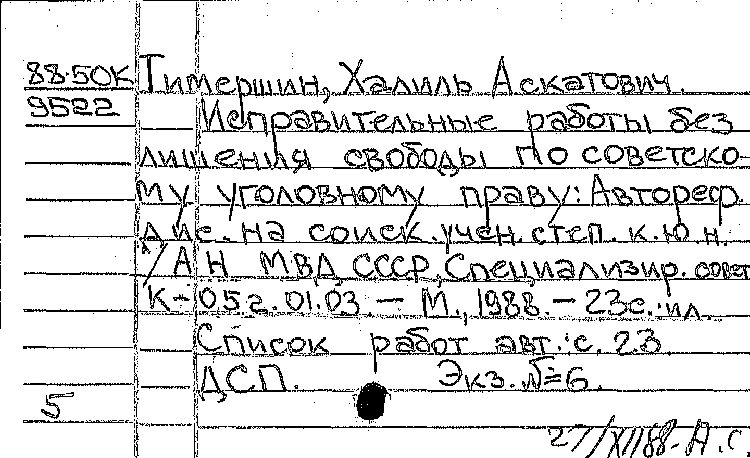 88-50К Тимершин, Халиль Аскатович.
9522 Исправительные работы без
лишения свободы по советско-
му уголовному праву: Автореф.
дис. на соиск. учен. степ. к.ю.н.
/АН МВД СССР, Специализир. совет
К-052.01.03. - М., 1988. - 23с.: ил.
Список работ авт.: с. 23.
ДСП. Экз. №6.
5
27/XII88- А.С.